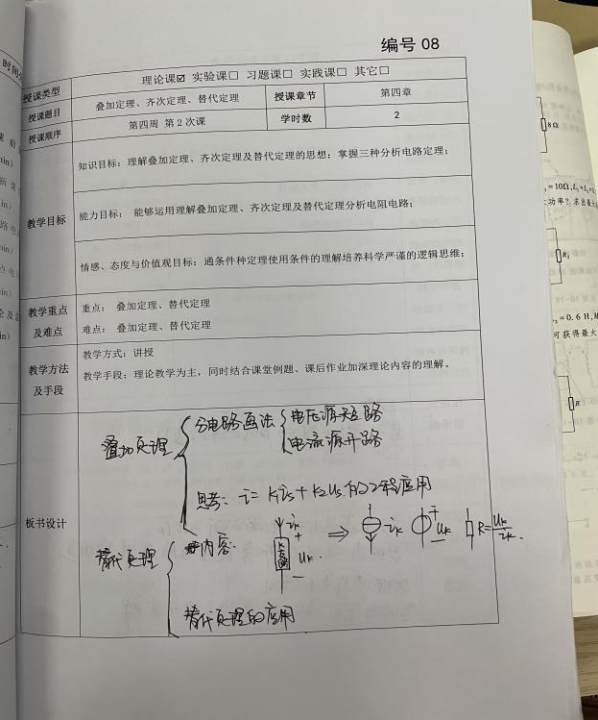 编号 08
授课类型 理论课☑ 实验课□ 习题课□ 实践课□ 其它□
授课题目 叠加定理、齐次定理、替代定理 授课章节 第四章
授课顺序 第四周 第2次课 学时数 2
教学目标
知识目标：理解叠加定理、齐次定理及替代定理的思想；掌握三种分析电路定理；
能力目标： 能够运用理解叠加定理、齐次定理及替代定理分析电阻电路；
情感、态度与价值观目标：通条件种定理使用条件的理解培养科学严谨的逻辑思维；
教学重点及难点
重点： 叠加定理、替代定理
难点： 叠加定理、替代定理
教学方法及手段
教学方式：讲授
教学手段：理论教学为主，同时结合课堂例题、课后作业加深理论内容的理解。
板书设计
叠加定理
分电路画法
电压源短路
电流源开路
思考: i= K₁is+K₂us 的工程应用
替代定理
内容:
ik
+
uk
−
⇒
ik
+
uk
−
R=uk/ik
替代定理的应用
8Ω
=10Ω,L
R
=0.6 H,M
可获得最大
R